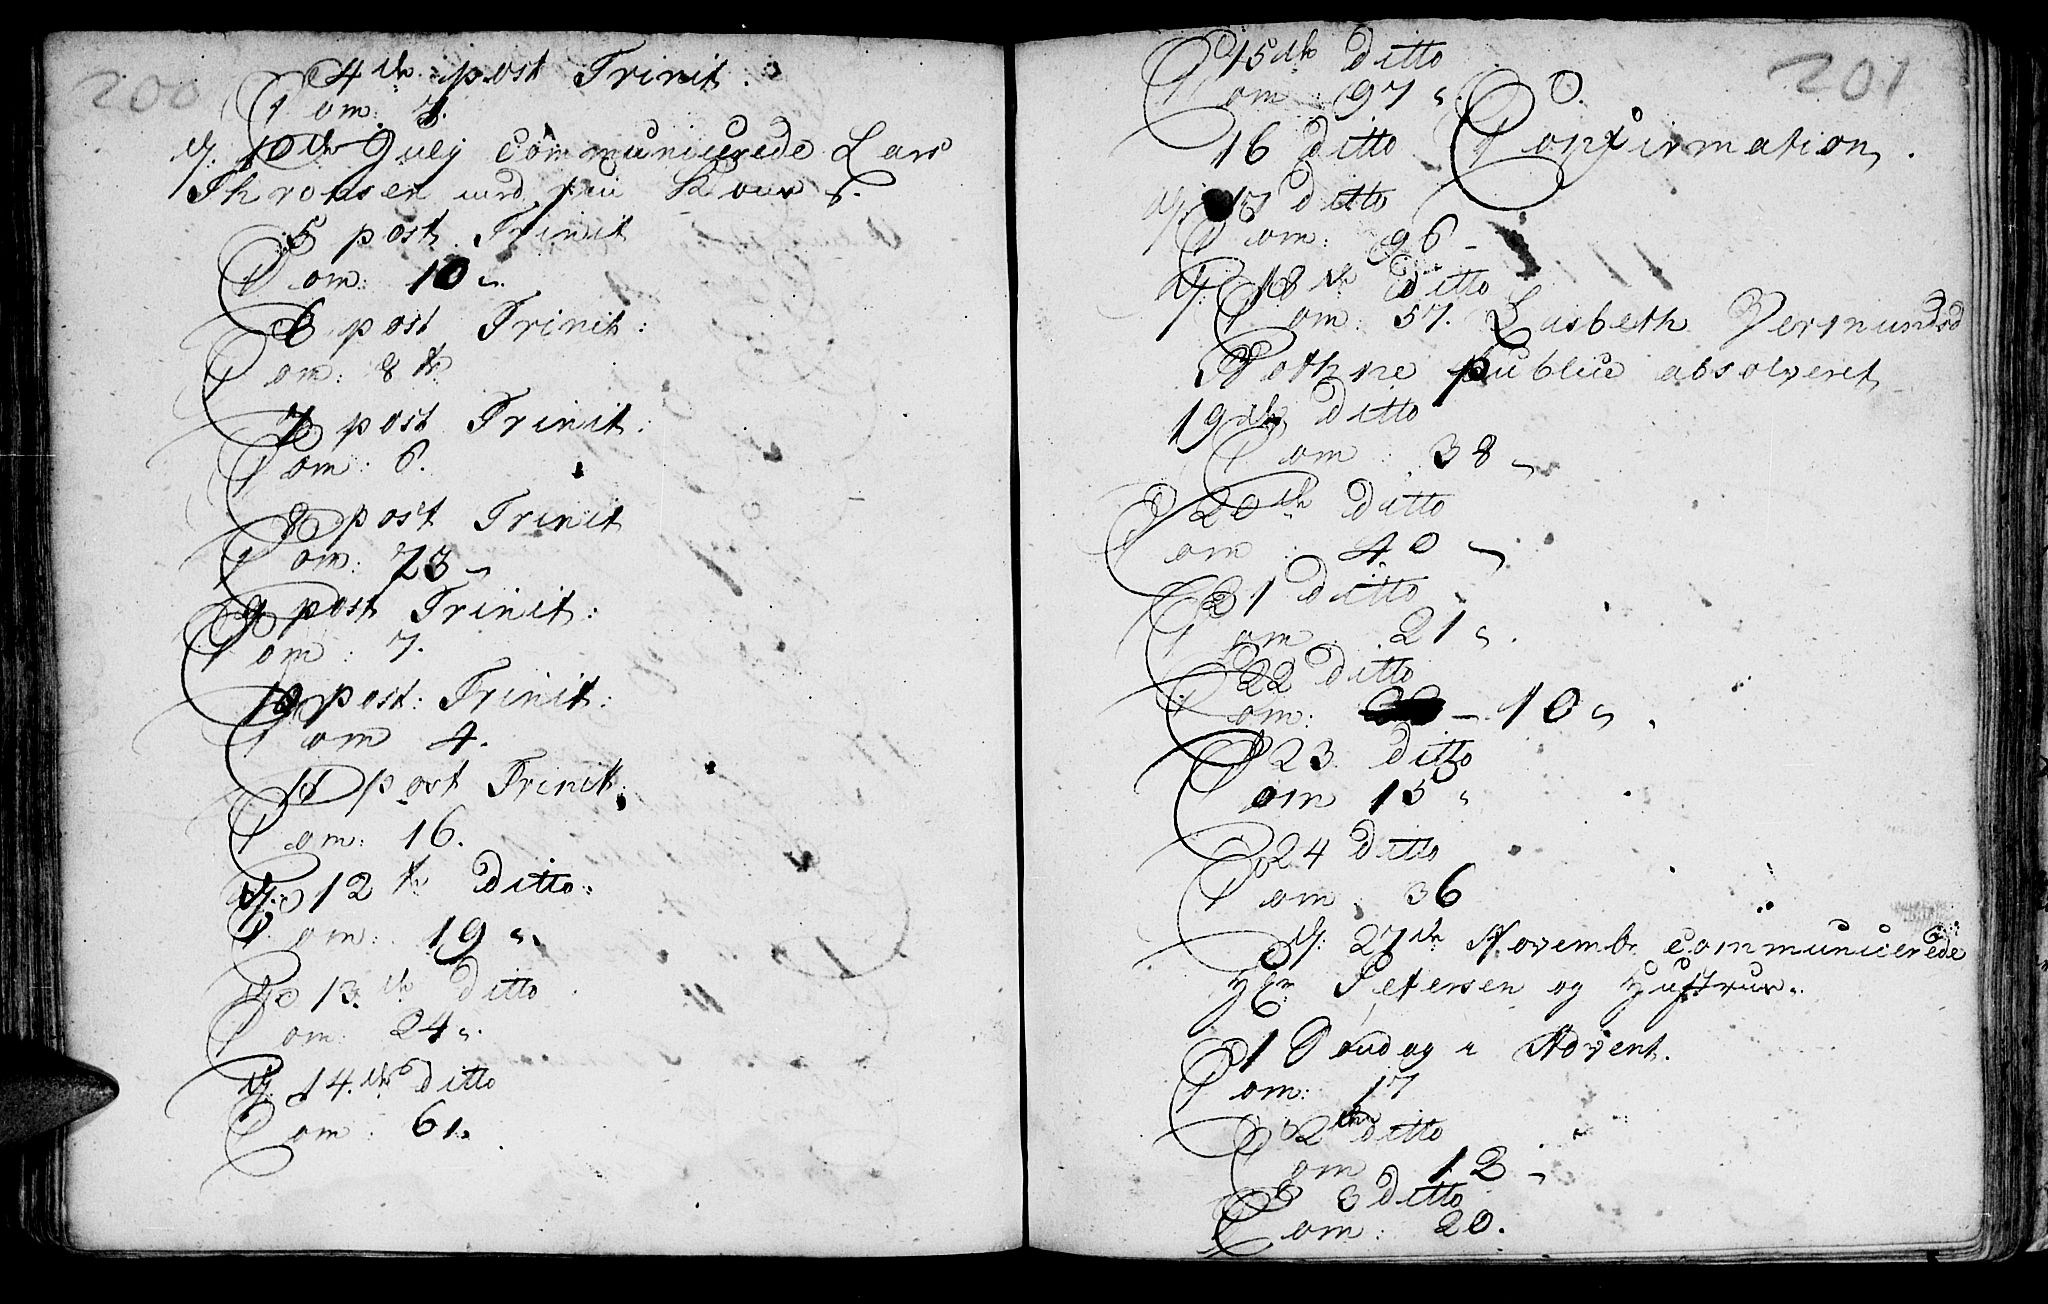 200
4de post Trinit:
Com: 7.
d: 10de July Communicerede Lars
Thronsen med sin Kone
5 post Trinit
Com: 10
6 post Trinit:
Com: 8
7 post Trinit:
Com: 6.
8 post Trinit
Com: 73
9 post Trinit:
Com: 7.
10 post: Trinit:
Com 4.
11 post Trinit:
Com: 16.
d: 12te Ditto
Com: 19
d: 13de Ditto
Com: 24
d: 14de Ditto
Com: 61.
201
15de Ditto
Com: 97
16 Ditto Confirmation.
d: 17 Ditto
Com: 96
d: 18de Ditto
Com: 57. Lisbeth Vermundsd
publice absolveret
19de Ditto
Com: 38
20de Ditto
Com: 40
21 Ditto
Com: 21
22 Ditto
Com: 10
23 Ditto
Com 15
24 Ditto
Com 36
d: 27de Novemb: communicerede
Hr Petersen og Hustrue.
1 Søndag i Advent.
Com: 17
2den Ditto
Com 12
3 Ditto
Com: 20.